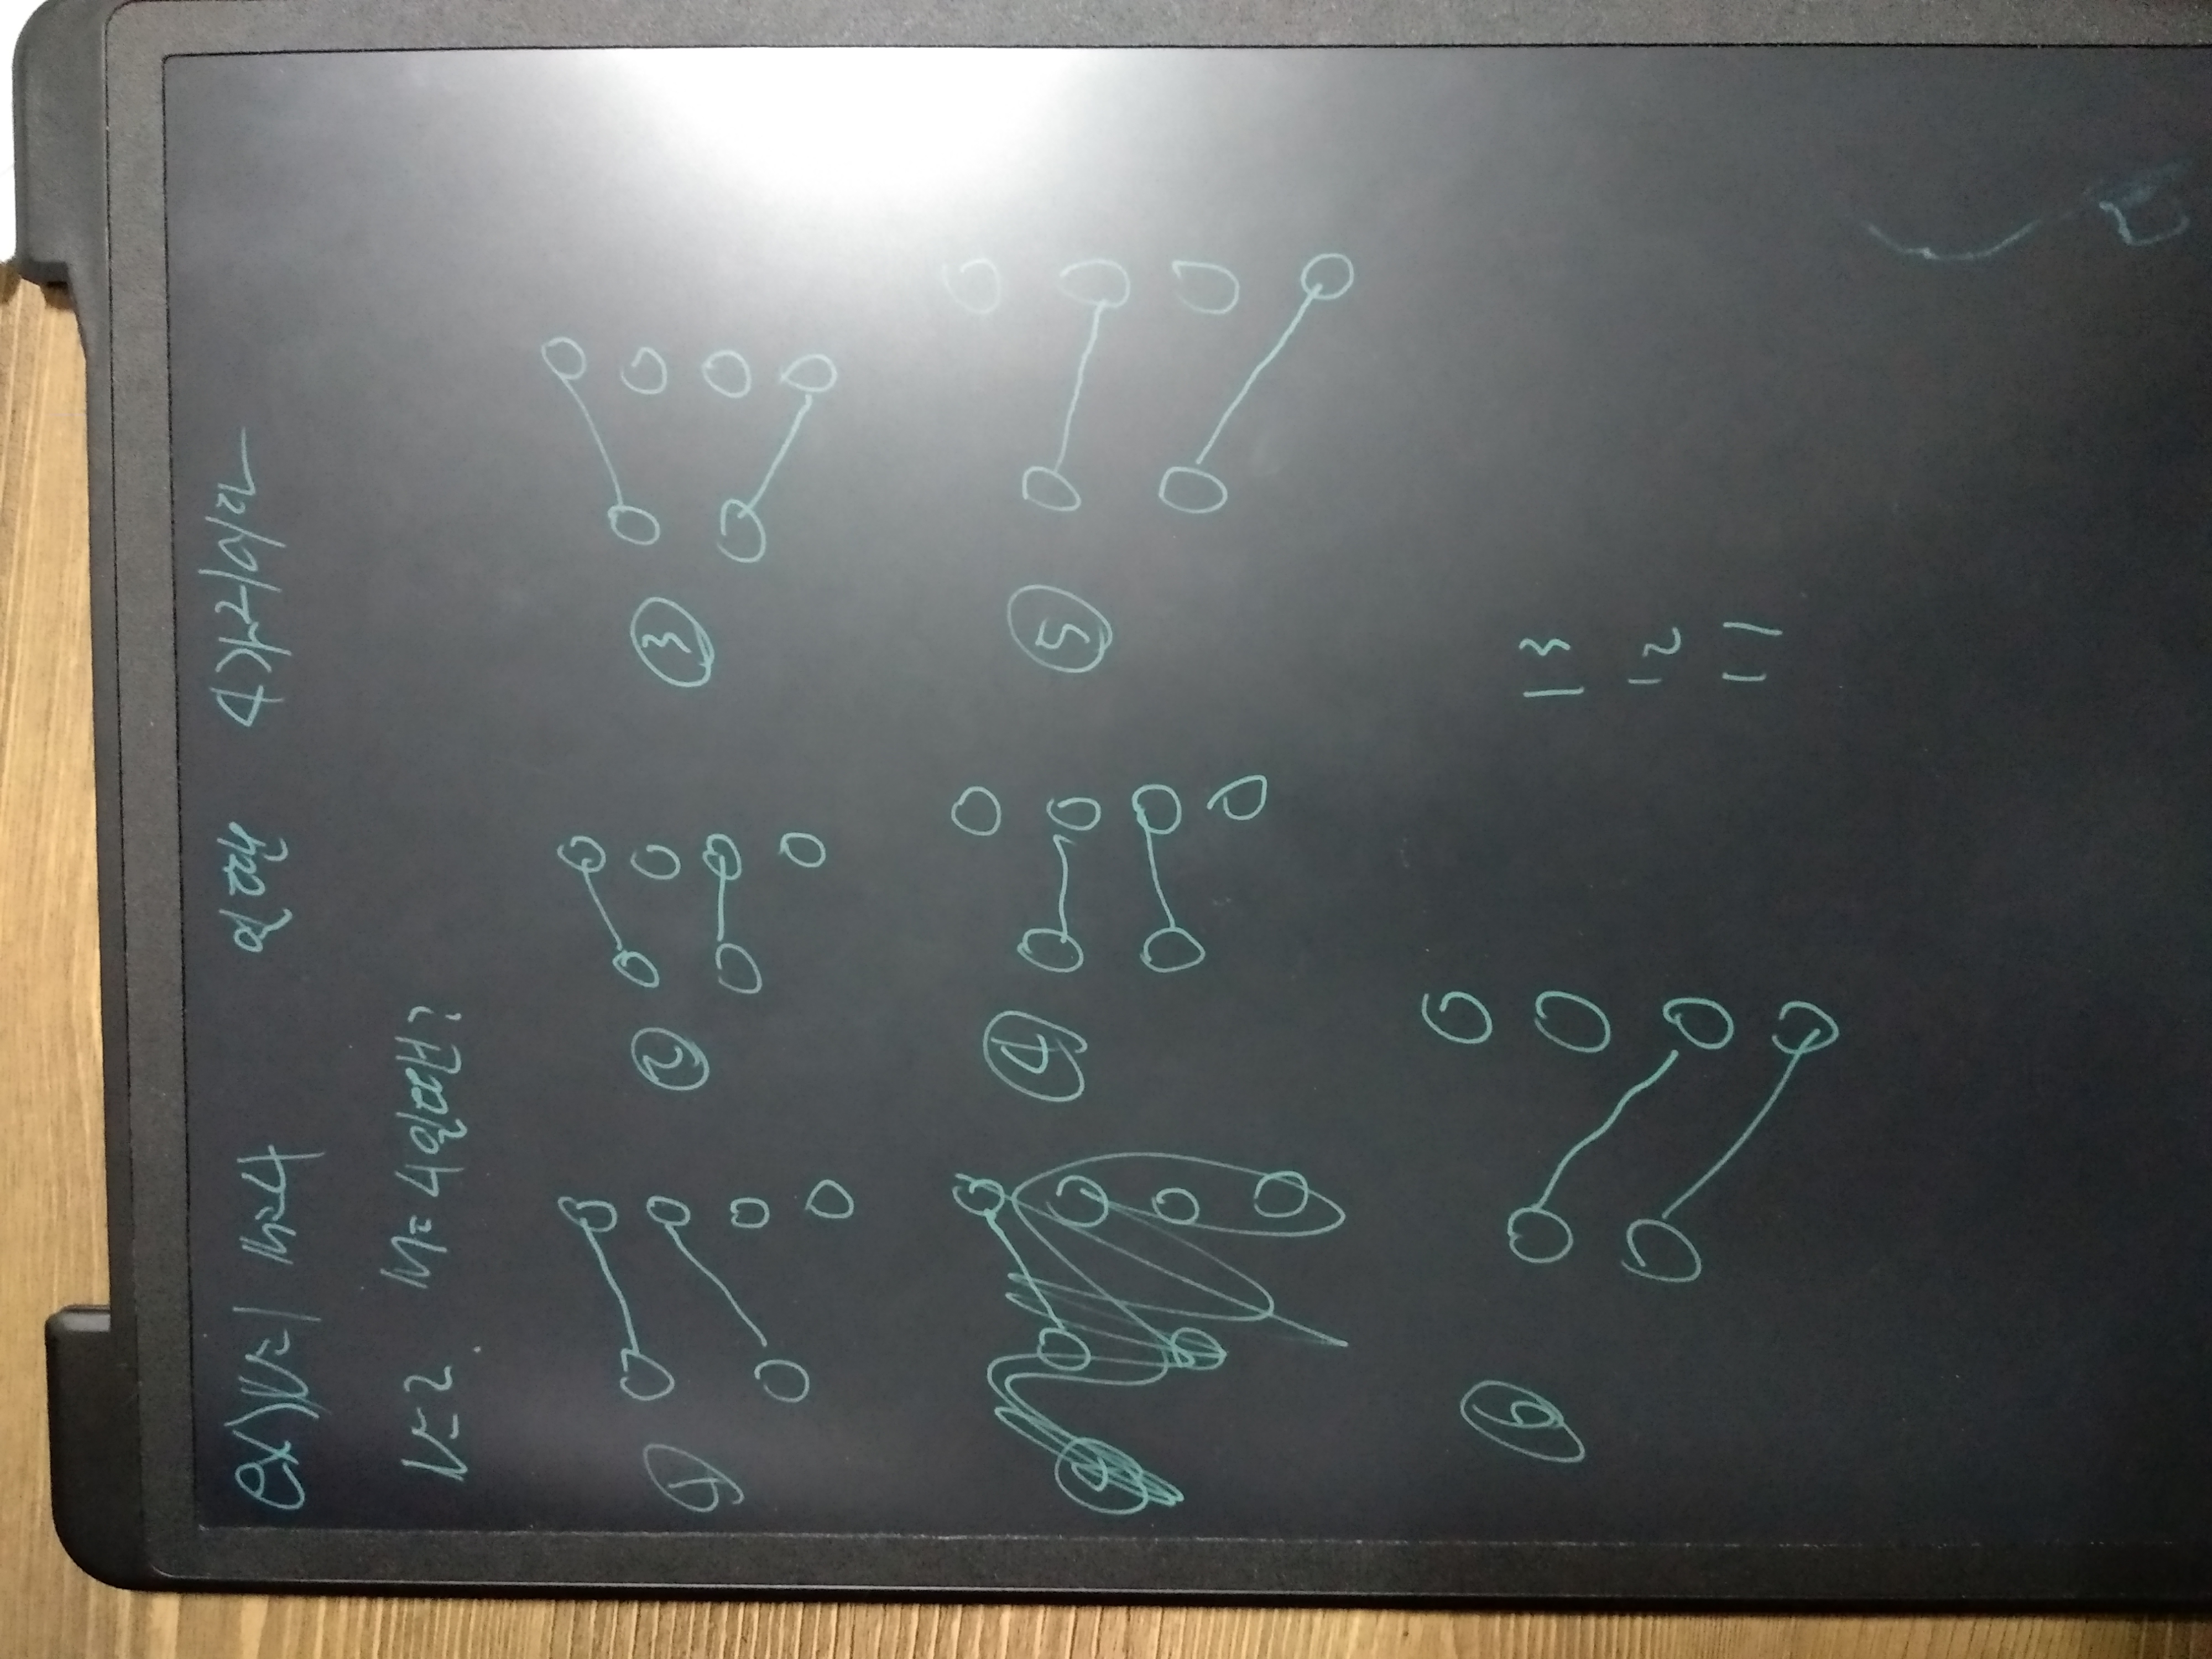 ex) N=1 M=4 일땐 4가지이다
N=2. M=4일땐?
① ② ③
④ ⑤
⑥
13
12
11